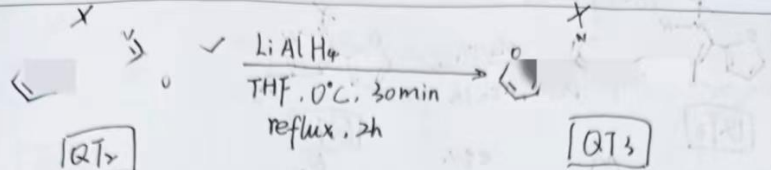 X
X
✓
LiAlH4
O
N
O
THF, 0°C, 30min
reflux, 2h
QT2
QT3